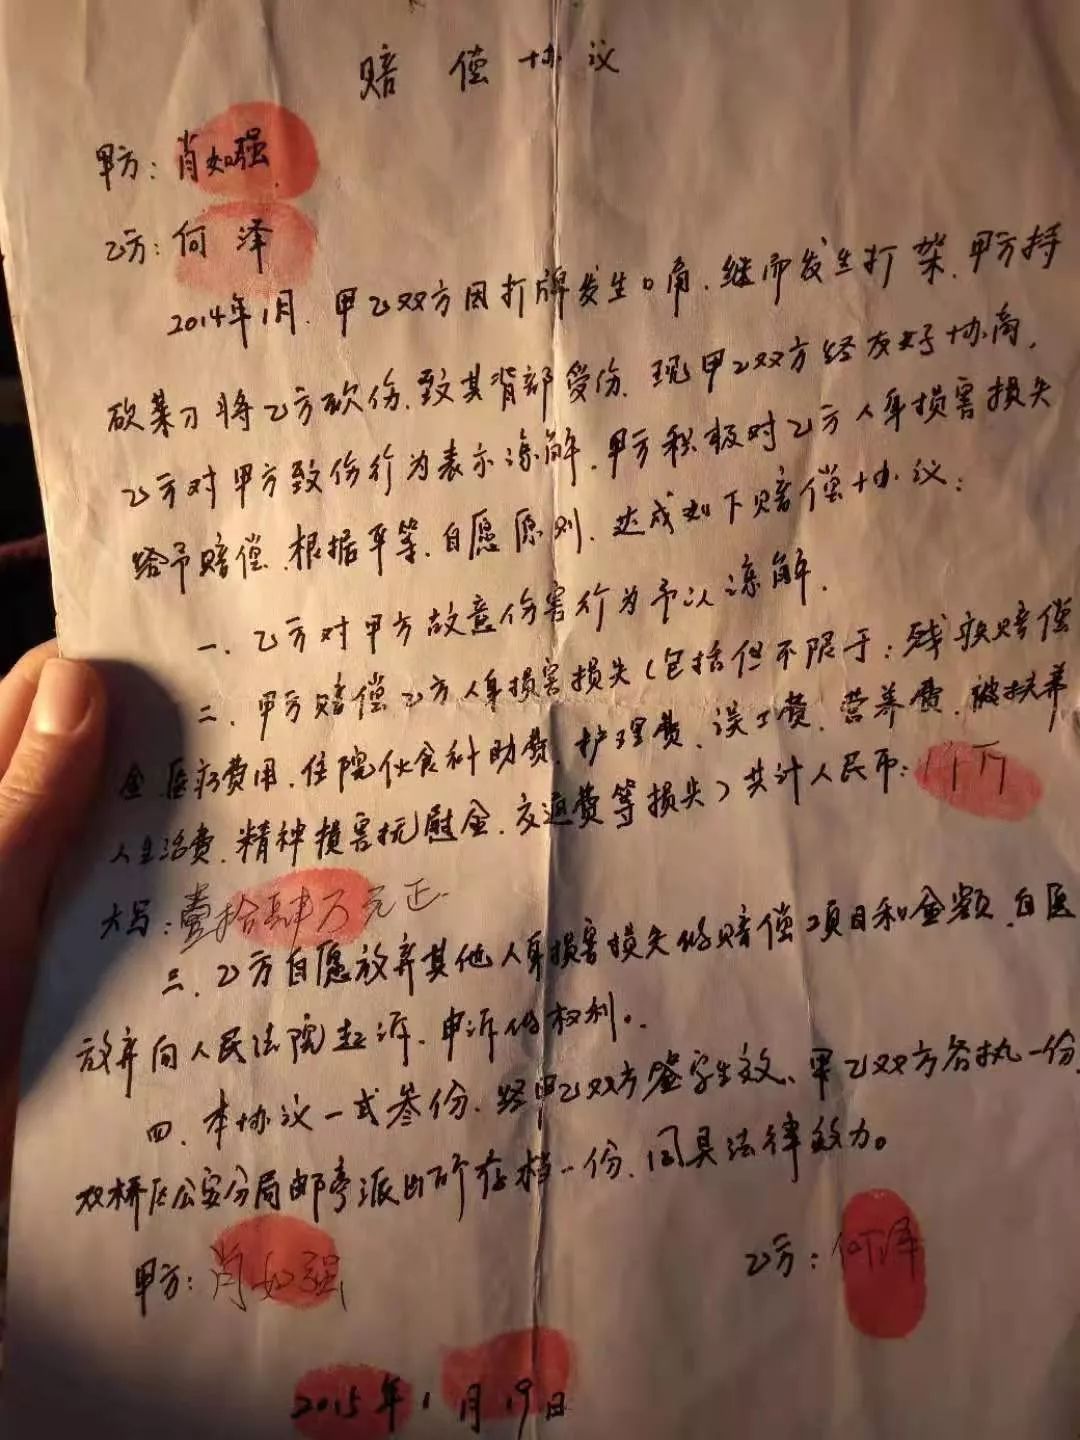 赔偿协议
甲方：肖如强
乙方：何泽
2014年1月，甲乙双方因打牌发生口角，继而发生打架，甲方持
砍菜刀将乙方砍伤，致其背部受伤，现甲乙双方经友好协商，
乙方对甲方致伤行为表示谅解，甲方积极对乙方人身损害损失
给予赔偿，根据平等、自愿愿则，达成如下赔偿协议：
一、乙方对甲方故意伤害行为予以谅解。
二、甲方赔偿乙方人身损害损失（包括但不限于：残疾赔偿
金、医疗费用、住院伙食补助费、护理费、误工费、营养费、被扶养
人生活费、精神损害抚慰金、交通费等损失）共计人民币：14万
大写：壹拾肆万元正
三、乙方自愿放弃其他人身损害损失的赔偿项目和金额，自愿
放弃向人民法院起诉、申诉的权利。
四、本协议一式叁份，经甲乙双方签字生效，甲乙双方各执一份，
双桥区公安分局邮亭派出所存档一份，同具法律效力。
甲方：肖如强
乙方：何泽
2015年1月19日